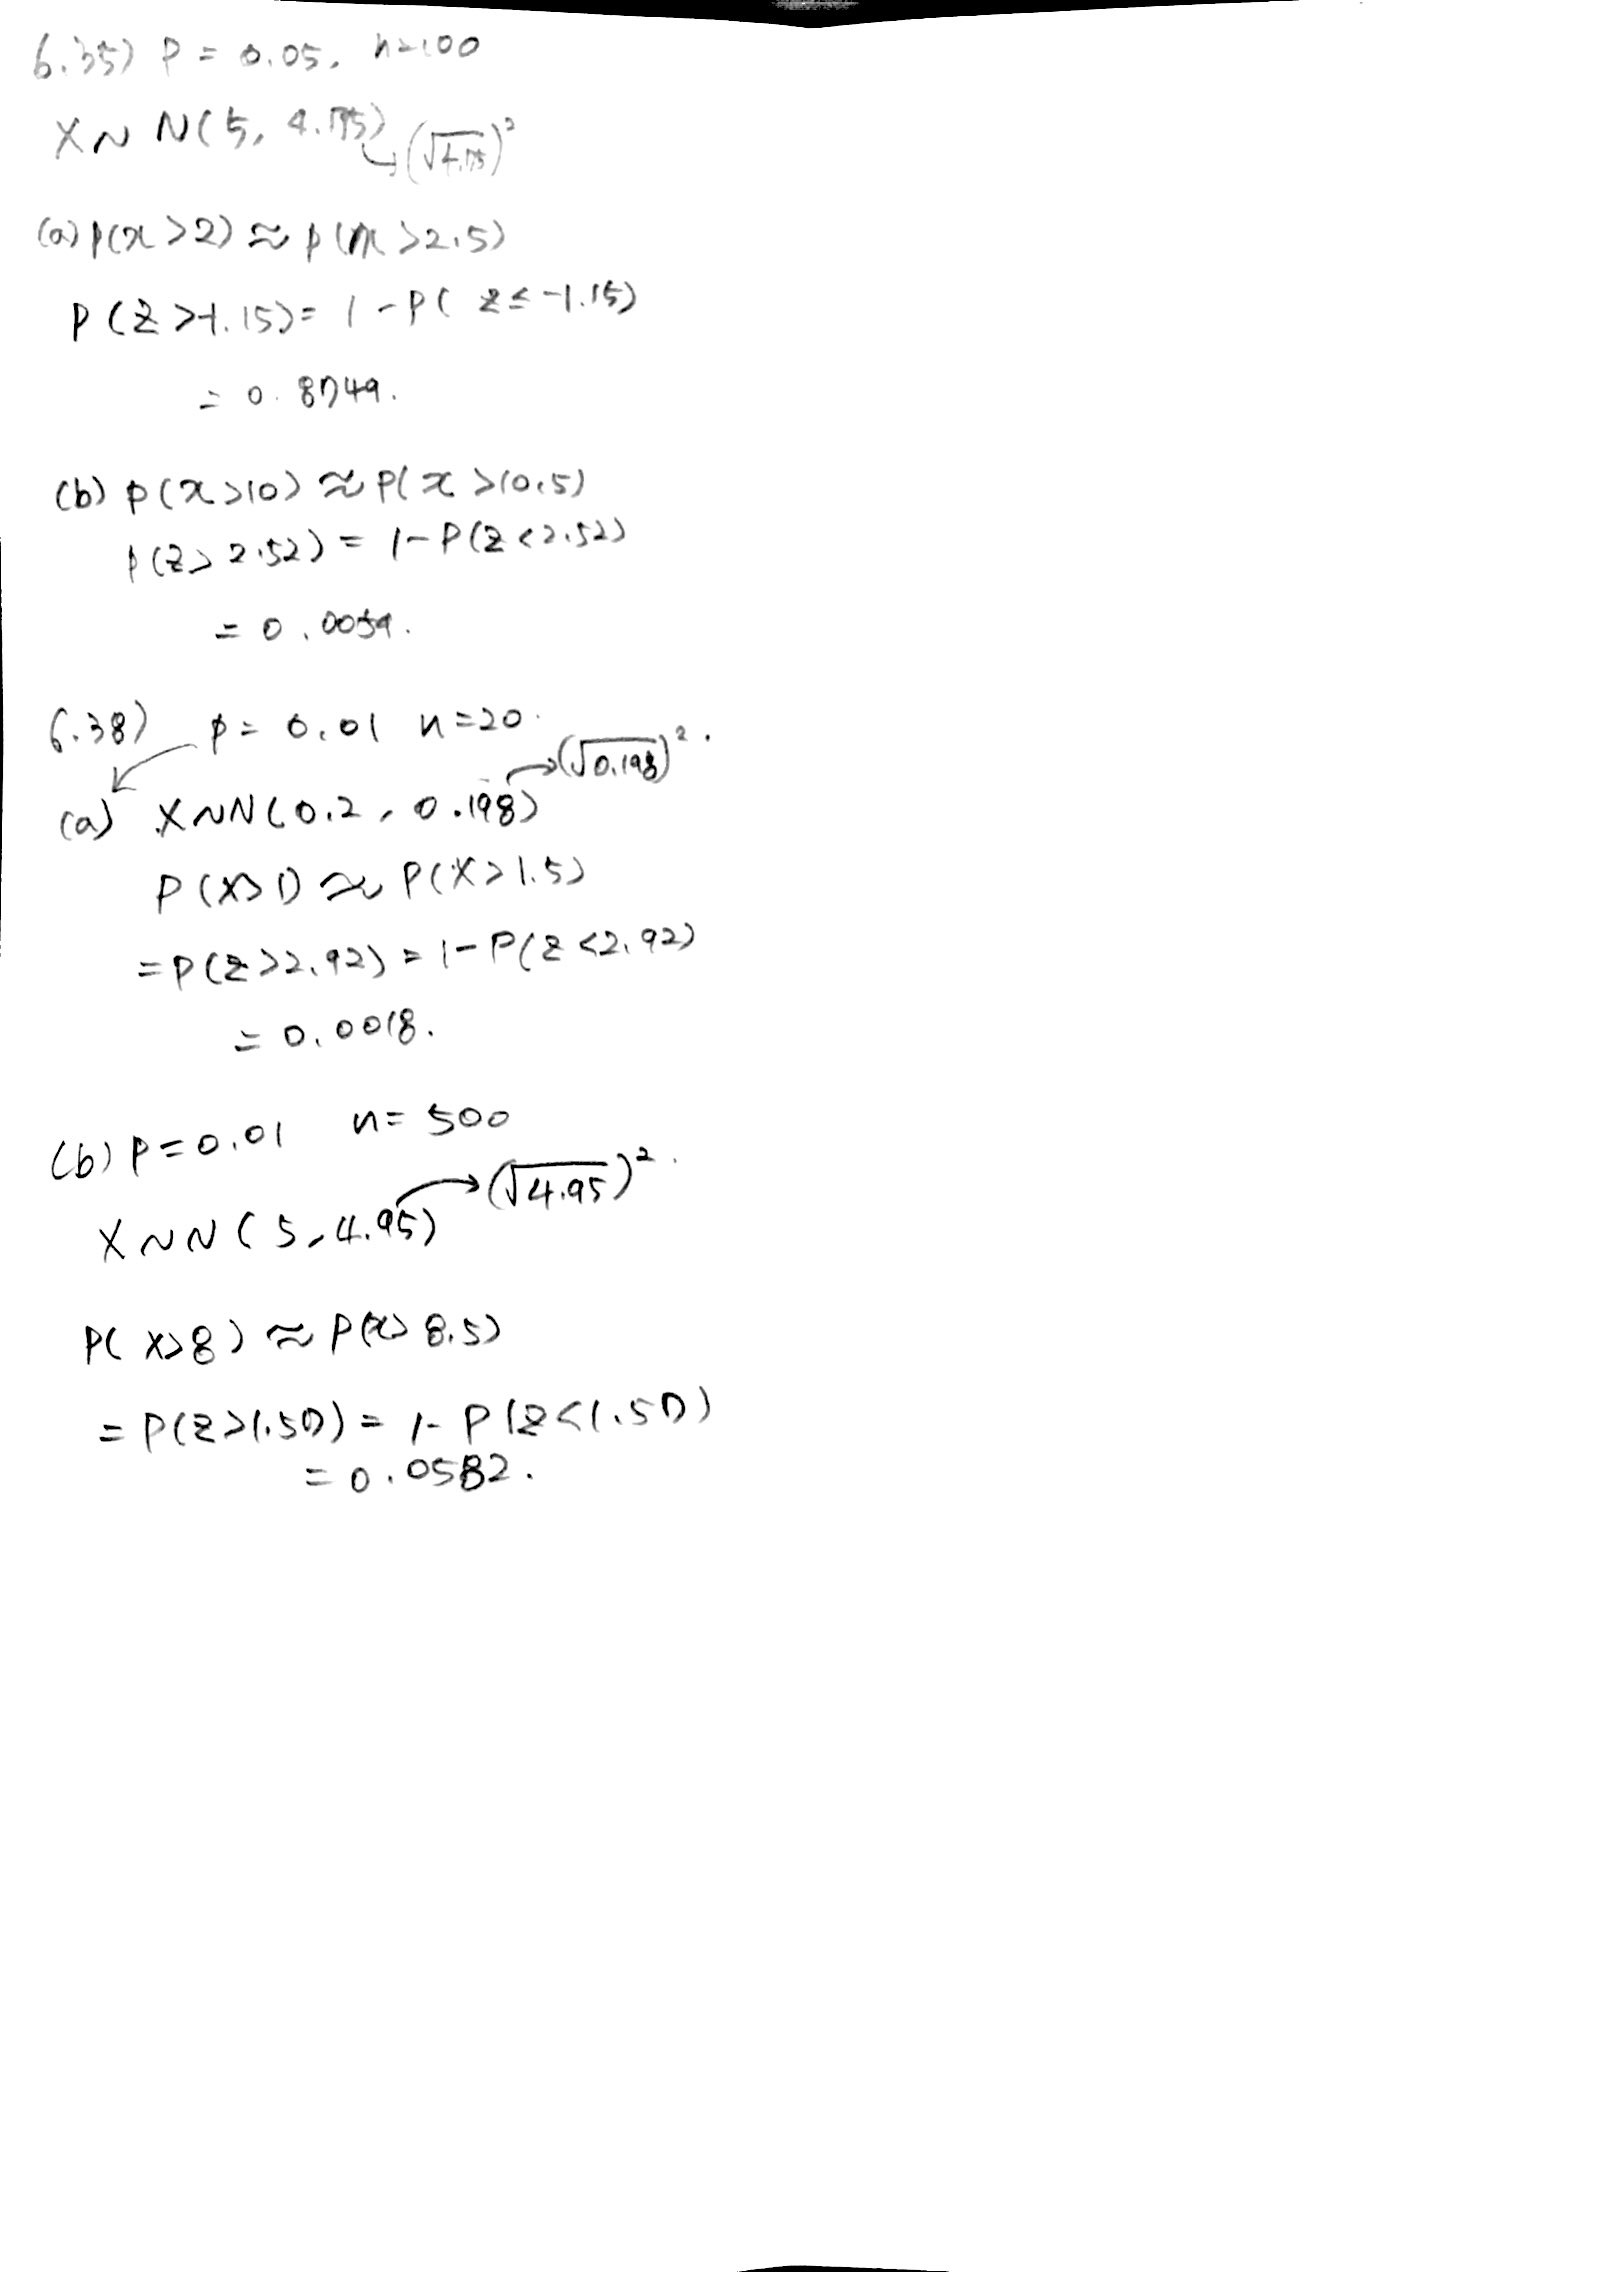 6.35) P = 0.05, n=100
X ~ N(5, 4.75) → (√4.75)²
(a) p(x >2) ≈ p(x >2.5)
P(z >-1.15) = 1 - P( z ≤ -1.15)
= 0.8749.
(b) p(x>10) ≈ P(x >10.5)
P(z> 2.52) = 1-P(z <2.52)
= 0.0059.
6.38) p = 0.01 n=20.
(a) X~N(0.2, 0.198) → (√0.198)².
P(X>1) ≈ P(X>1.5)
=P(z>2.92) = 1-P(z <2.92)
= 0.0018.
(b) P=0.01 n= 500
X~N(5, 4.95) → (√4.95)².
P( X>8) ≈ P(x> 8.5)
= P(z>1.57) = 1- P(z<1.57)
= 0.0582.